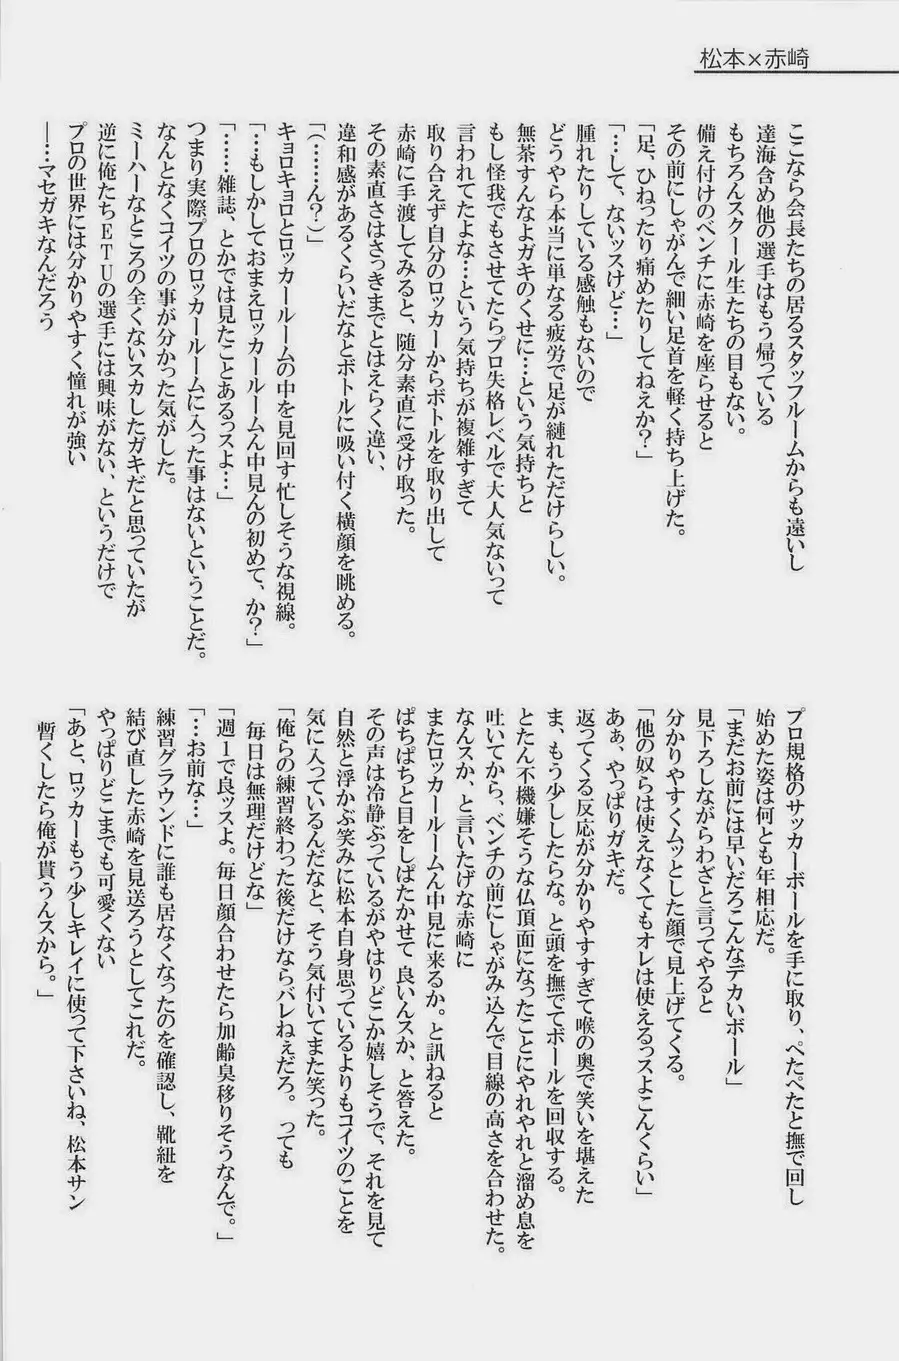 松本×赤崎
ここなら会長たちの居るスタッフルームからも遠いし
達海含め他の選手はもう帰っている
もちろんスクール生たちの目もない。
備え付けのベンチに赤崎を座らせると
その前にしゃがんで細い足首を軽く持ち上げた。
「足、ひねったり痛めたりしてねえか？」
「…して、ないッスけど…」
腫れたりしている感触もないので
どうやら本当に単なる疲労で足が縺れただけらしい。
無茶すんなよガキのくせに…という気持ちと
もし怪我でもさせてたらプロ失格レベルで大人気ないって
言われてたよな…という気持ちが複雑すぎて
取り合えず自分のロッカーからボトルを取り出して
赤崎に手渡してみると、随分素直に受け取った。
その素直さはさっきまでとはえらく違い、
違和感があるくらいだなとボトルに吸い付く横顔を眺める。
「（……ん？）」
キョロキョロとロッカールームの中を見回す忙しそうな視線。
「…もしかしておまえロッカールームん中見んの初めて、か？」
「……雑誌、とかでは見たことあるっスよ…」
つまり実際プロのロッカールームに入った事はないということだ。
なんとなくコイツの事が分かった気がした。
ミーハーなところの全くないスカしたガキだと思っていたが
逆に俺たちＥＴＵの選手には興味がない、というだけで
プロの世界には分かりやすく憧れが強い
―…マセガキなんだろう
プロ規格のサッカーボールを手に取り、ぺたぺたと撫で回し
始めた姿は何とも年相応だ。
「まだお前には早いだろこんなデカいボール」
見下ろしながらわざと言ってやると
分かりやすくムッとした顔で見上げてくる。
「他の奴らは使えなくてもオレは使えるっスよこんくらい」
あぁ、やっぱりガキだ。
返ってくる反応が分かりやすすぎて喉の奥で笑いを堪えた
ま、もう少ししたらな。と頭を撫でてボールを回収する。
とたん不機嫌そうな仏頂面になったことにやれやれと溜め息を
吐いてから、ベンチの前にしゃがみ込んで目線の高さを合わせた。
なんスか、と言いたげな赤崎に
またロッカールームん中見に来るか。と訊ねると
ぱちぱちと目をしばたかせて 良いんスか、と答えた。
その声は冷静ぶっているがやはりどこか嬉しそうで、それを見て
自然と浮かぶ笑みに松本自身思っているよりもコイツのことを
気に入っているんだなと、そう気付いてまた笑った。
「俺らの練習終わった後だけならバレねぇだろ。 っても
毎日は無理だけどな」
「週１で良ッスよ。毎日顔合わせたら加齢臭移りそうなんで。」
「…お前な…」
練習グラウンドに誰も居なくなったのを確認し、靴紐を
結び直した赤崎を見送ろうとしてこれだ。
やっぱりどこまでも可愛くない
「あと、ロッカーもう少しキレイに使って下さいね、松本サン
暫くしたら俺が貰うんスから。」